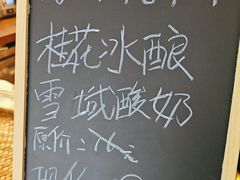 桂花冰酿
雪域酸奶
原价：16元
现价